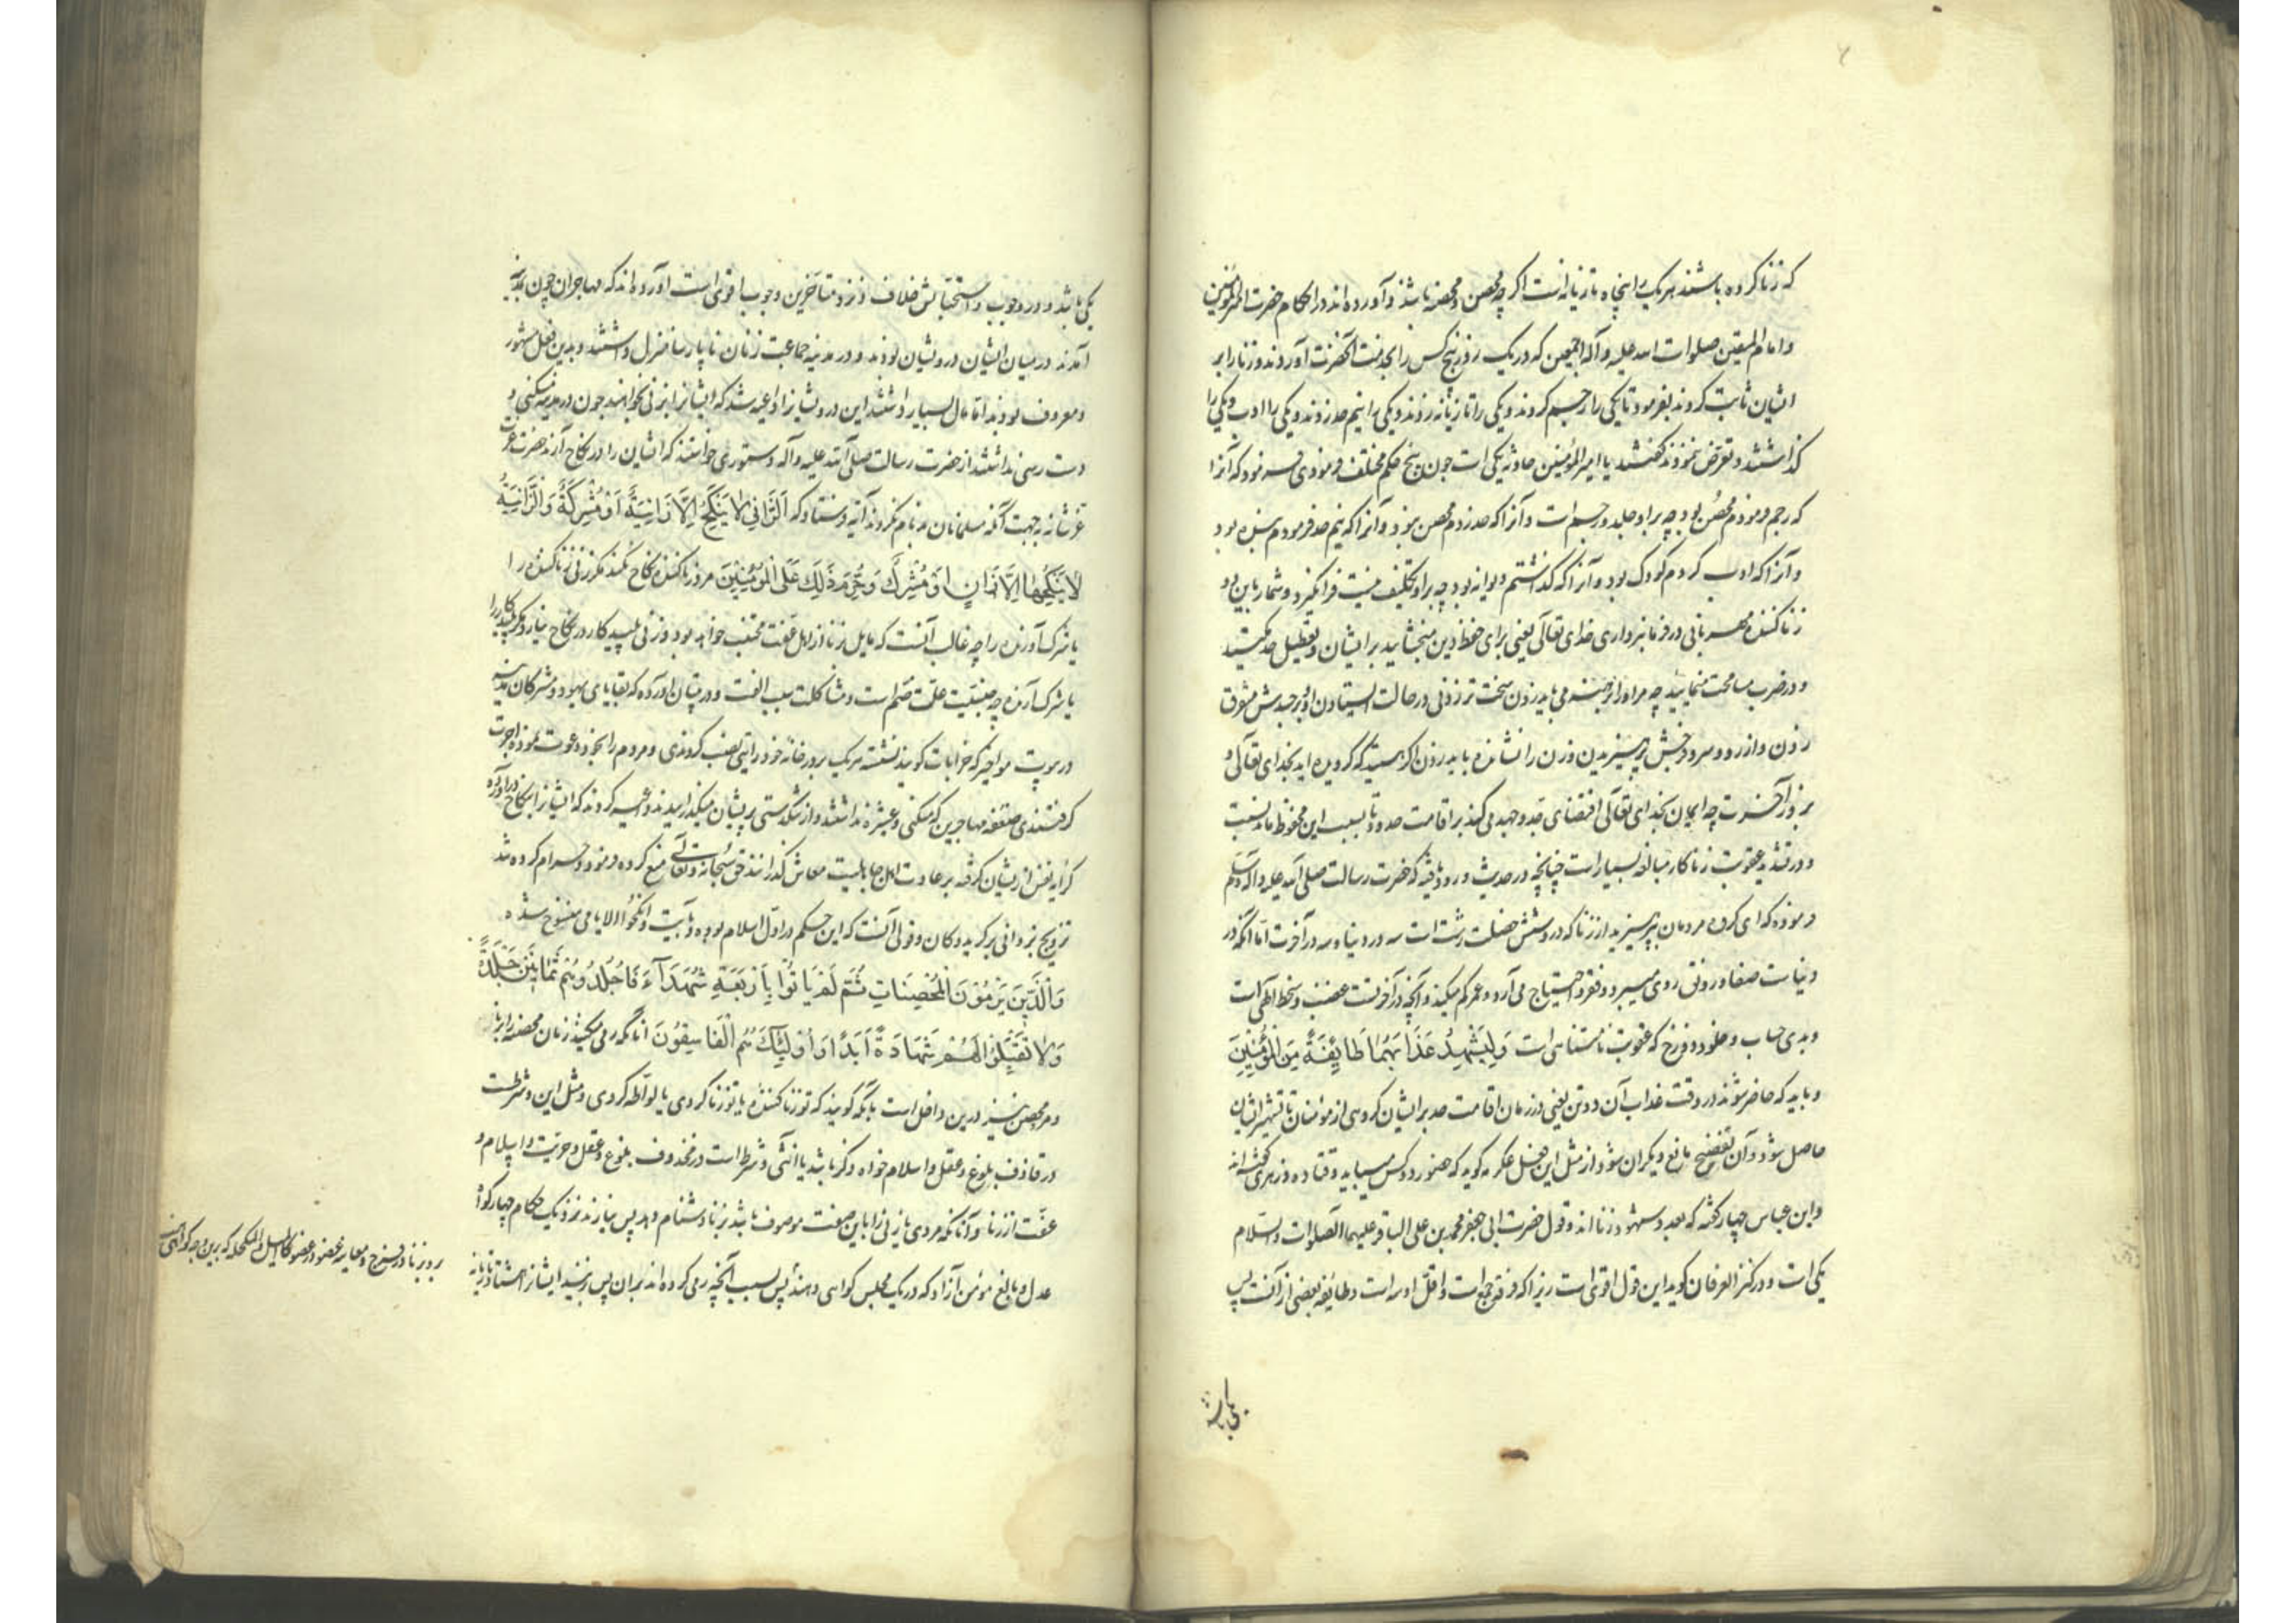 که زنا کرده باشند هر یک را پنجاه تازیانه است اگر چه محصن و محصنه باشند و آورده‌اند در احکام حضرت امیرالمؤمنین
و امام المتقین صلوات الله علیه و آله اجمعین که در یک روز پنج کس را بخدمت آنحضرت آوردند و زنا را بر
ایشان ثابت کردند بفرمود تا یکی را رجم کردند و یکی را تازیانه زدند و یکی را نیم حد زدند و یکی را ادب و یکی را
گذاشتند و تعرض ننمودند گفتند یا امیرالمؤمنین حادثه یکی است چون پنج حکم مختلف فرمودی فرمود که آنرا
که رجم فرمودم محصن بود چه بر او جلد و رجم است و آنرا که حد زدم محصن نبود و آنرا که نیم حد فرمودم بنده بود
و آنرا که ادب کردم کودک بود و آنرا که گذاشتم دیوانه بود چه بر او تکلیف نیست فرا نگیرد شما را باین دو
زنا کننده مهربانی در فرمانبرداری خدای تعالی یعنی برای حفظ دین مبخشایید بر ایشان و تعطیل حد مکنید
و در ضرب مسامحت منمایید چه مرد را برهنه می باید زدن سخت تر زدنی در حالت ایستادن او و بر جسدش متفرق
زدن و از رو و سر و فرجش پرهیزیدن و زن را نشانده باید زدن اگر هستید که گرویده اید بخدای تعالی و
بروز آخرت چه ایمان بخدای تعالی اقتضای جد و جهد می کند بر اقامت حدود تا بسبب این محفوظ ماند نسب
و در تشدید عقوبت زناکار مبالغه بسیار است چنانچه در حدیث ورود یافته که حضرت رسالت صلی الله علیه و آله وسلم
فرموده که ای گروه مردمان بپرهیزید از زنا که در وشش خصلت زشت است سه در دنیا و سه در آخرت اما آنکه در
دنیاست صفا و رونق روی میبرد و فقر و احتیاج می آرد و عمر کم میکند و آنچه در آخرتست غضب و سخط الهی است
و بدی حساب و خلود دوزخ که عقوبت نامتناهی است وَلْيَشْهَدْ عَذَابَهُمَا طَائِفَةٌ مِنَ الْمُؤْمِنِينَ
و باید که حاضر شوند در وقت عذاب آن دو تن یعنی در زمان اقامت حد بر ایشان گروهی از مؤمنان تا تشهیر ایشان
حاصل شود و آن تفضیح مانع دیگران شود از مثل این فعل عکرمه گوید که حضور دو کس میباید و قتاده و زهری گفته سه
و ابن عباس چهار گفته که بعدد شهود زنا اند و قول حضرت ابی جعفر محمد بن علی الباقر علیهما الصلوات والسلام
یکی است و در کنز العرفان گوید این قول اقوی است زیرا که فرقه جمع است و اقل او سه است و طایفه بعضی از آنست پس
یکی باشد و در وجوب و استحبابش خلاف و نزد متأخرین وجوب اقوی است آورده‌اند که مهاجران چون بمدینه
آمدند در میان ایشان درویشان بودند و در مدینه جماعت زنان ناپارسا منزل داشتند و بدین فعل مشهور
و معروف بودند اما مال بسیار داشتند این درویشانرا داعیه شد که ایشانرا بزنی بخواهند چون در مدینه مسکنی و
دست رسی نداشتند از حضرت رسالت صلی الله علیه و آله دستوری خواستند که ایشان را در نکاح آرند حضرت عزت
عز شانه بجهت آنکه مسلمانان بدنام نگردند آیه فرستاد که اَلزَّانِي لَا يَنْكِحُ اِلَّا زَانِيَةً اَوْ مُشْرِكَةً وَالزَّانِيَةُ
لَا يَنْكِحُهَا اِلَّا زَانٍ اَوْ مُشْرِكٌ وَحُرِّمَ ذَلِكَ عَلَى الْمُؤْمِنِينَ مرد زنا کننده نکاح نکند مگر زنی زنا کننده را
یا شرک آورنده را چه غالب آنست که مایل زنا از اهل عفت مجتنب خواهد بود و زنی پلید کار در نکاح نیارد مگر پلید کاری را
یا شرک آرنده چه جنسیت علت ضم است و مشاکلت سبب الفت و در تبیان آورده که بقایای یهود و مشرکان مدینه
در بیوت مواخیر که خرابات گویند نشسته هر یک بر در خانه خود رایتی نصب کردندی و مردم را بخود دعوت نموده اجرت
گرفتندی ضعفه مهاجرین که مسکنی و عشیره نداشتند و از تنگدستی پریشان میگذرانیدند قصد کردند که ایشانرا بنکاح درآورده
کرایه نفس از ایشان گرفته بر عادت اهل جاهلیت معاش گذرانند حق سبحانه و تعالی منع کرده فرمود و حرام کرده شد
تزویج زوانی بر گرویدگان و قولی آنست که این حکم در اول اسلام بوده و بآیت وانکحوا الایامی منسوخ شده
وَالَّذِينَ يَرْمُونَ الْمُحْصَنَاتِ ثُمَّ لَمْ يَأْتُوا بِاَرْبَعَةِ شُهَدَآءَ فَاجْلِدُوهُمْ ثَمَانِينَ جَلْدَةً
وَلَا تَقْبَلُوا لَهُمْ شَهَادَةً اَبَدًا وَاُولٰئِكَ هُمُ الْفَاسِقُونَ آنانکه رمی میکنند زنان محصنه را بزنا
و مرد محصن نیز درین داخل است بآنکه گویند که تو زنا کننده یا تو زنا کردی یا لواطه کردی و مثل این و شرطست
در قاذف بلوغ و عقل و اسلام خواه ذکر باشد یا انثی و شرط است در مقذوف بلوغ و عقل و حریت و اسلام و
عفت از زنا و آنانکه مردی یا زنی را باین صفت موصوف باشد بزنا دشنام دهد پس نیارند نزدیک حکام چهار گواه
عدل و بالغ مؤمن آزاد که در یک مجلس گواهی دهند پس بسبب آنچه رمی کرده اند بر آن پس بزنید ایشانرا هشتاد تازیانه
برو بزنا در فرج و معاینه عضو در عضو کالمیل فی المکحله که برین وجه گواهی